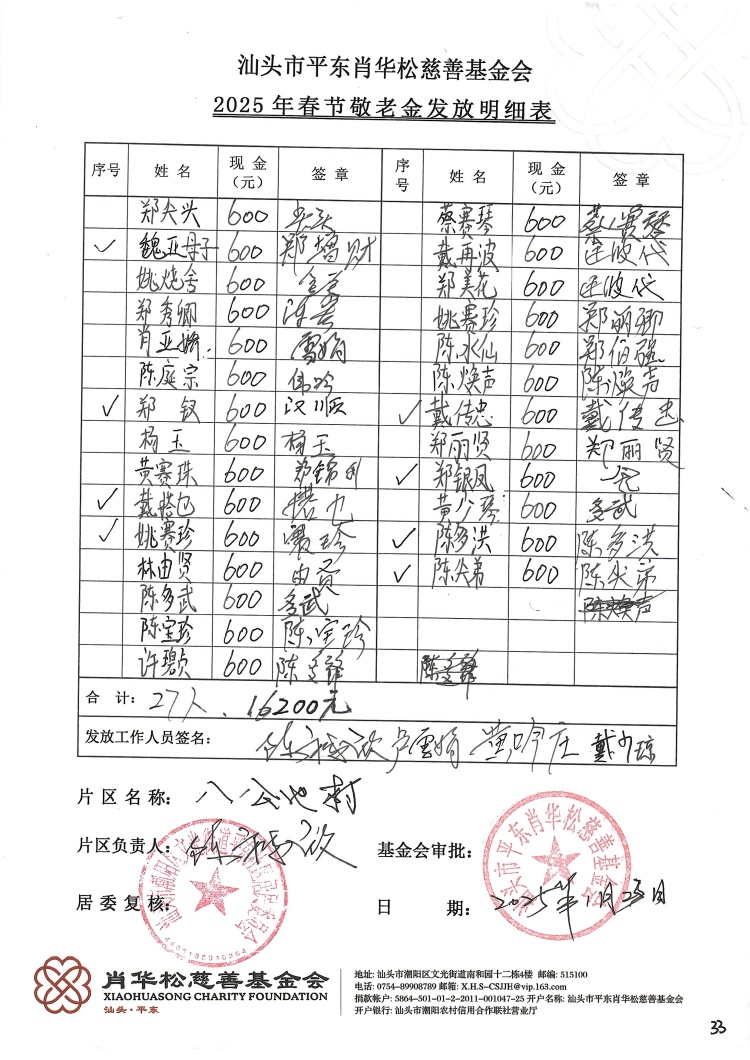 汕头市平东肖华松慈善基金会
2025 年春节敬老金发放明细表
序号 姓名 现金（元） 签章 序号 姓名 现金（元） 签章
郑尖头 600 蔡赛琴 600
✓ 魏亚母子 600 戴再波 600
姚烧舍 600 郑美花 600
郑秀卿 600 姚赛珍 600 郑丽卿
肖亚娇 600 雪娟 陈水仙 600
陈庭宗 600 陈焕声 600 陈焕声
✓ 郑钗 600 汉顺 ✓ 戴传忠 600 戴传忠
杨玉 600 杨玉 郑丽贤 600 郑丽贤
黄赛珠 600 郑锦利 ✓ 郑银凤 600
✓ 戴 600 黄少琴 600 多武
✓ 姚赛珍 600 赛珍 ✓ 陈多洪 600 陈多洪
林由贤 600 由贤 ✓ 陈尖弟 600 陈尖弟
陈多武 600 多武 陈焕声
陈宝珍 600 陈宝珍
许 600 陈
合 计： 27人、16200元
发放工作人员签名： 卢雪娟 黄吟庄 戴少琼
片区名称： 八公地村
片区负责人： 基金会审批：
居委复核： 日 期： 2025年1月23日
汕头市平东肖华松慈善基金会
肖华松慈善基金会
XIAOHUASONG CHARITY FOUNDATION
汕头·平东
地址: 汕头市潮阳区文光街道南和园十二栋4楼 邮编: 515100
电话: 0754-89908789 邮箱: X.H.S-CSJJH@vip.163.com
捐款帐户: 5864-501-01-2-2011-001047-25 开户名称: 汕头市平东肖华松慈善基金会
开户银行: 汕头市潮阳农村信用合作联社营业厅
33